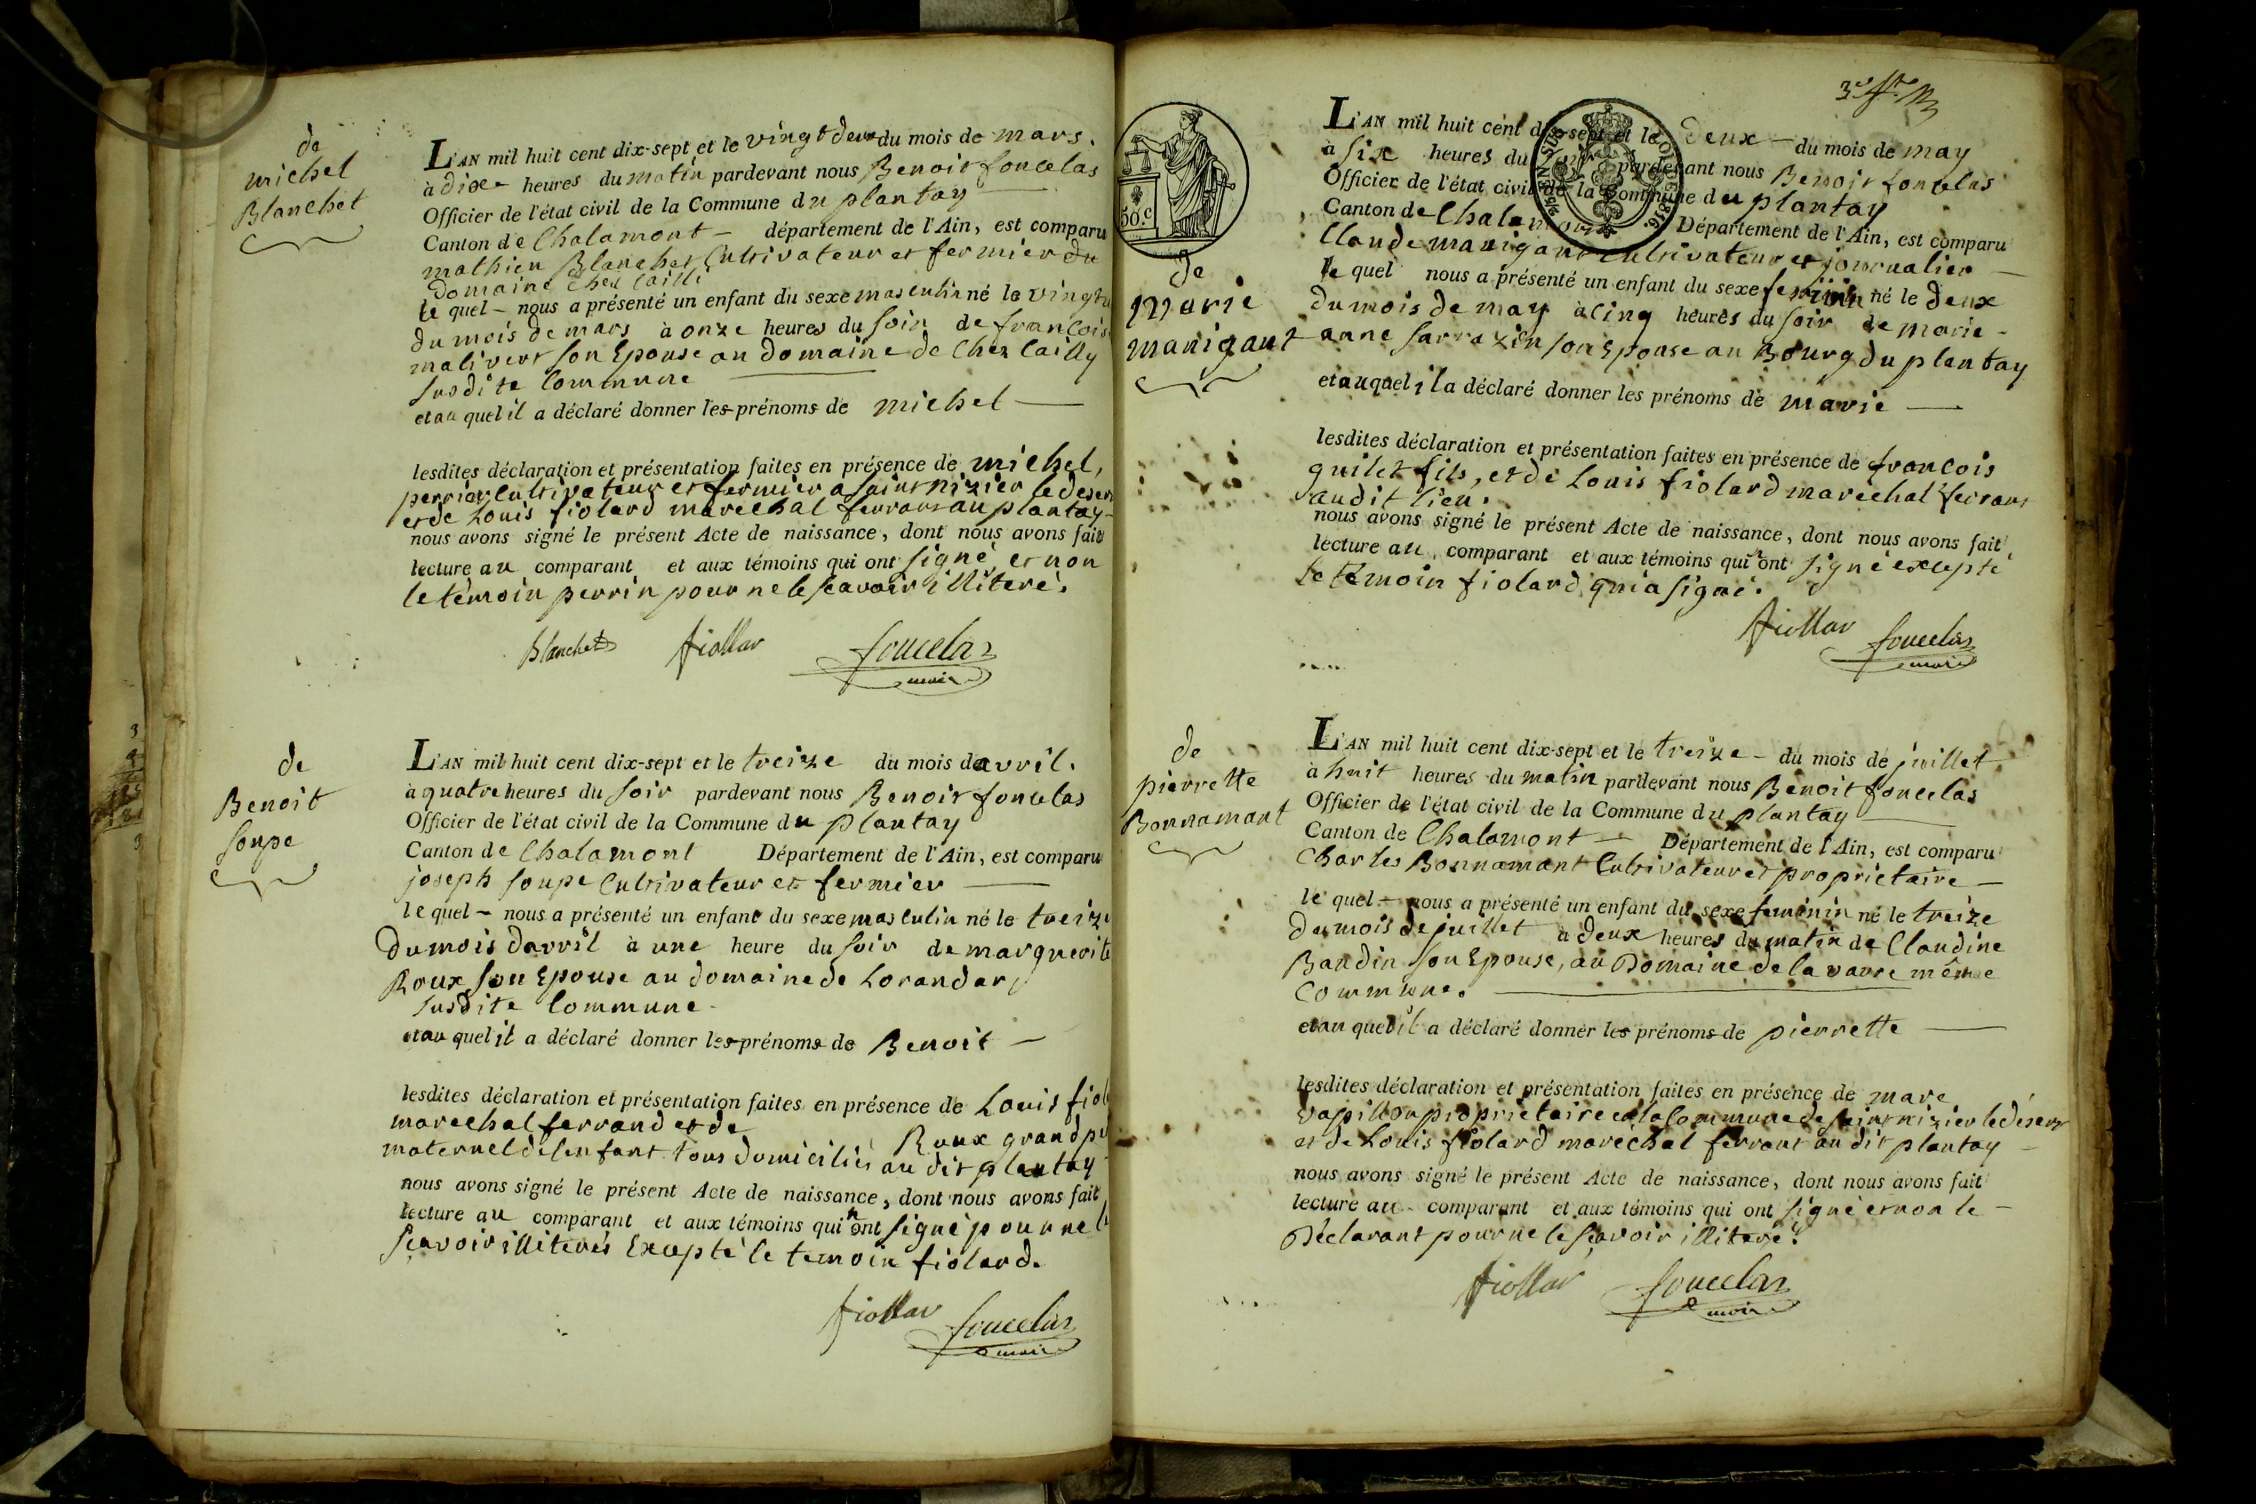 de
michel
Blanchet
L'AN mil huit cent dix-sept et le vingt deux du mois de mars.
à dixe heures du matin pardevant nous Benoit foncelas
Officier de l'état civil de la Commune du plantay
Canton de Chalamont - département de l'Ain, est comparu
mathieu Blanchet Cultivateur et fermier du
domaine Chez Cailli
le quel - nous a présenté un enfant du sexe masculin né le
du mois de mars à onze heures du soir de francois
malivert son Epouse au domaine de Chez Cailly
susdite Commune
et au quel il a déclaré donner les prénoms de michel
lesdites déclaration et présentation faites en présence de michel,
perrin Cultivateur et fermier a saint nizier le desert
et de Louis fiolard marechal ferrant au plantay
nous avons signé le présent Acte de naissance, dont nous avons fait
lecture au comparant et aux témoins qui ont signé, et non
le témoin perrin pour ne le scavoir illiteré.
Blanchet fiollar foncelas
maire
de
Benoit
soupe
L'AN mil huit cent dix-sept et le treize du mois d'avril.
à quatre heures du soir pardevant nous Benoit foncelas
Officier de l'état civil de la Commune du plantay
Canton de Chalamont Département de l'Ain, est comparu
joseph soupe Cultivateur et fermier
le quel - nous a présenté un enfant du sexe masculin né le treize
du mois d'avril à une heure du soir de marguerite
Roux son Epouse au domaine de
susdite Commune
et au quel il a déclaré donner les prénoms de Benoit
lesdites déclaration et présentation faites en présence de Louis
marechal ferrand et de Roux grand
maternel de l'enfant tous domiciliés au dit plantay
nous avons signé le présent Acte de naissance, dont nous avons fait
lecture au comparant et aux témoins qui n'ont signé pour ne le
scavoir illiterés Excepté le temoin fiolard.
fiollar foncelas
maire
50.c
de
marie
manigant
L'AN mil huit cent dix-sept et le deux du mois de may
à six heures du soir pardevant nous Benoit foncelas
Officier de l'état civil de la Commune du plantay
Canton de Chalamont Département de l'Ain, est comparu
Claude manigant Cultivateur et journalier
le quel nous a présenté un enfant du sexe feminin né le deux
du mois de may à cinq heures du soir de marie
anne sarrazin son Epouse au Bourg du plantay
et auquel il a déclaré donner les prénoms de marie
lesdites déclaration et présentation faites en présence de francois
fils, et de Louis fiolard marechal ferrant
audit lieu.
nous avons signé le présent Acte de naissance, dont nous avons fait
lecture au comparant et aux témoins qui n'ont signé excepté
le témoin fiolard qui a signé.
fiollar foncelas
maire
de
pierrette
Bonnamant
L'AN mil huit cent dix-sept et le treize - du mois de juillet
à huit heures du matin pardevant nous Benoit foncelas
Officier de l'état civil de la Commune du plantay
Canton de Chalamont - Département de l'Ain, est comparu
Charles Bonnamant Cultivateur et proprietaire
le quel - nous a présenté un enfant du sexe feminin né le treize
du mois de juillet à deux heures du matin de Claudine
Baudin son Epouse, au Domaine de la vavre même
Commune.
et au quel il a déclaré donner les prénoms de pierrette
lesdites déclaration et présentation faites en présence de marc
vapillon proprietaire a la Commune de saint nizier le désert
et de Louis fiolard maréchal ferrant au dit plantay
nous avons signé le présent Acte de naissance, dont nous avons fait
lecture au comparant et aux témoins qui ont signé et non le
Déclarant pour ne le scavoir illiteré.
fiollar foncelas
maire